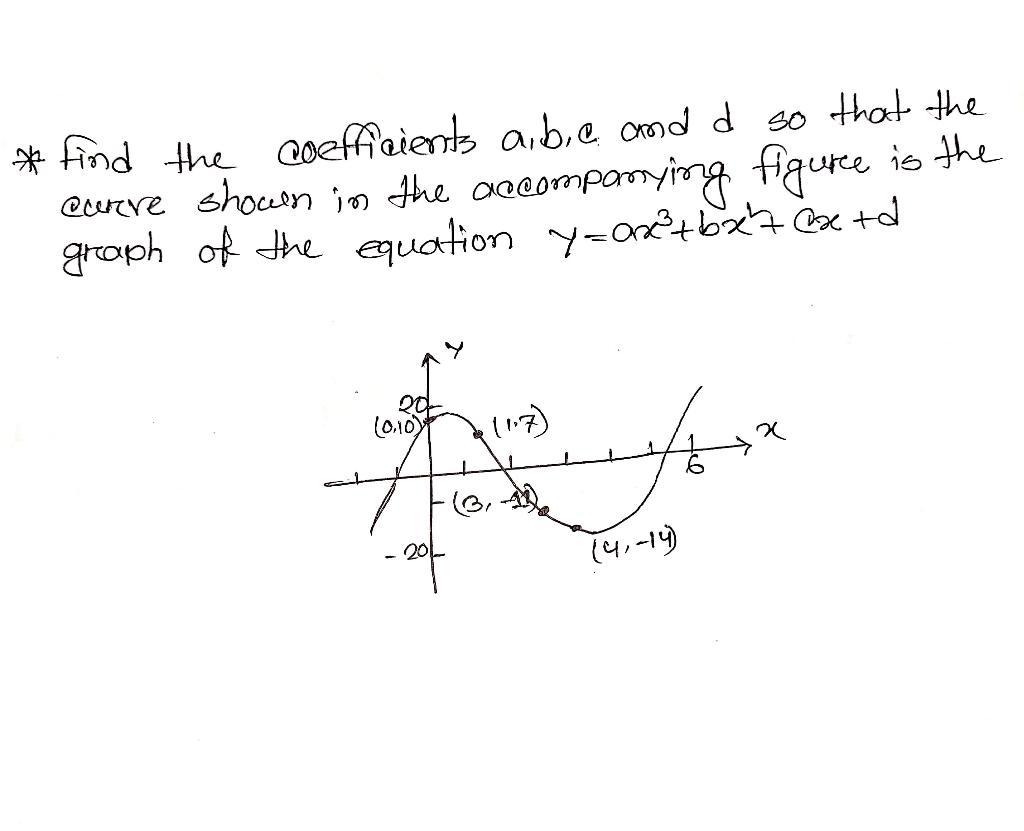 * find the coefficients a,b,c and d so that the
curve shown in the accompanying figure is the
graph of the equation y=ax³+bx²+cx+d
y
20
(0,10)
(1,7)
x
6
(3,-11)
-20
(4,-14)